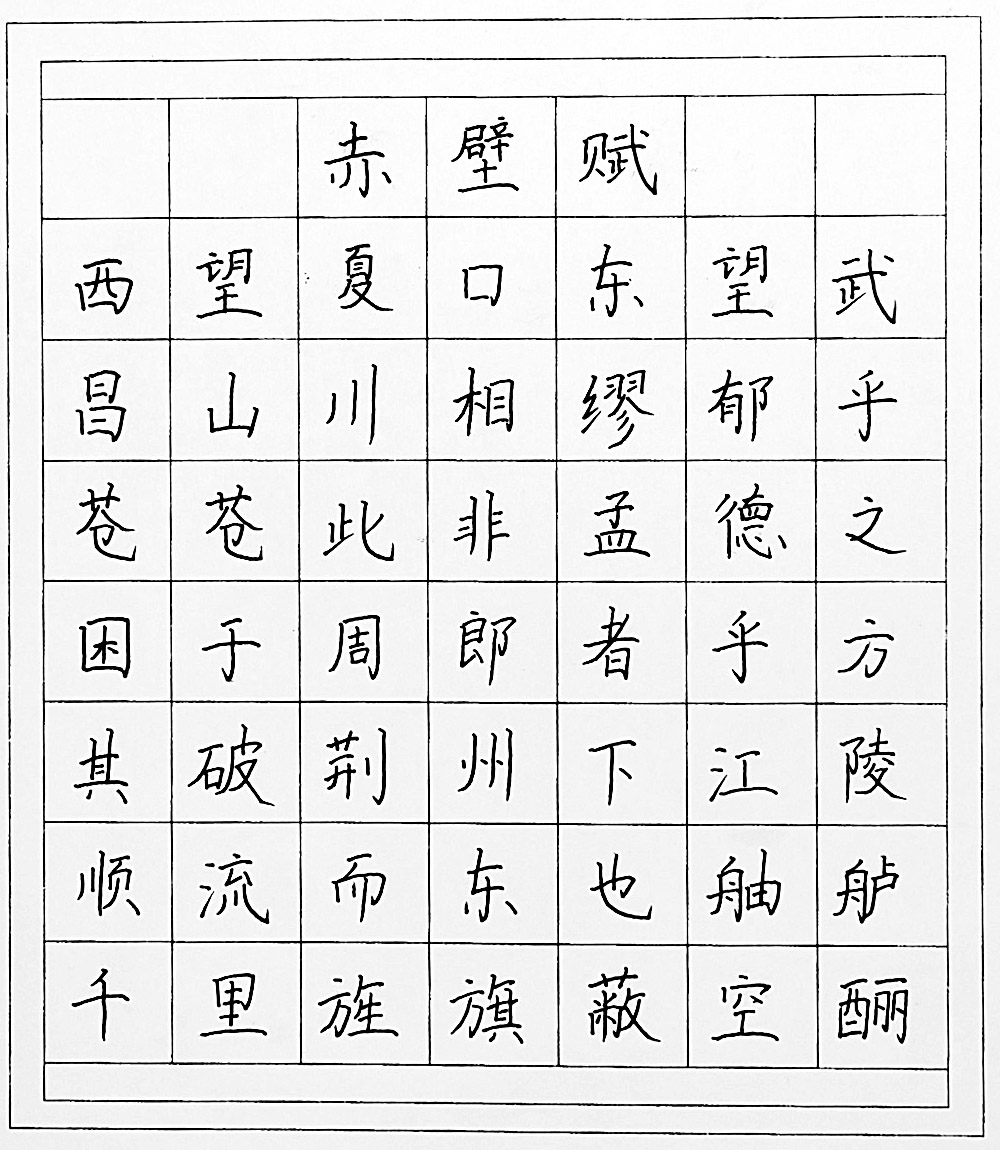 赤壁赋
西望夏口东望武
昌山川相缪郁乎
苍苍此非孟德之
困于周郎者乎方
其破荆州下江陵
顺流而东也舳舻
千里旌旗蔽空酾